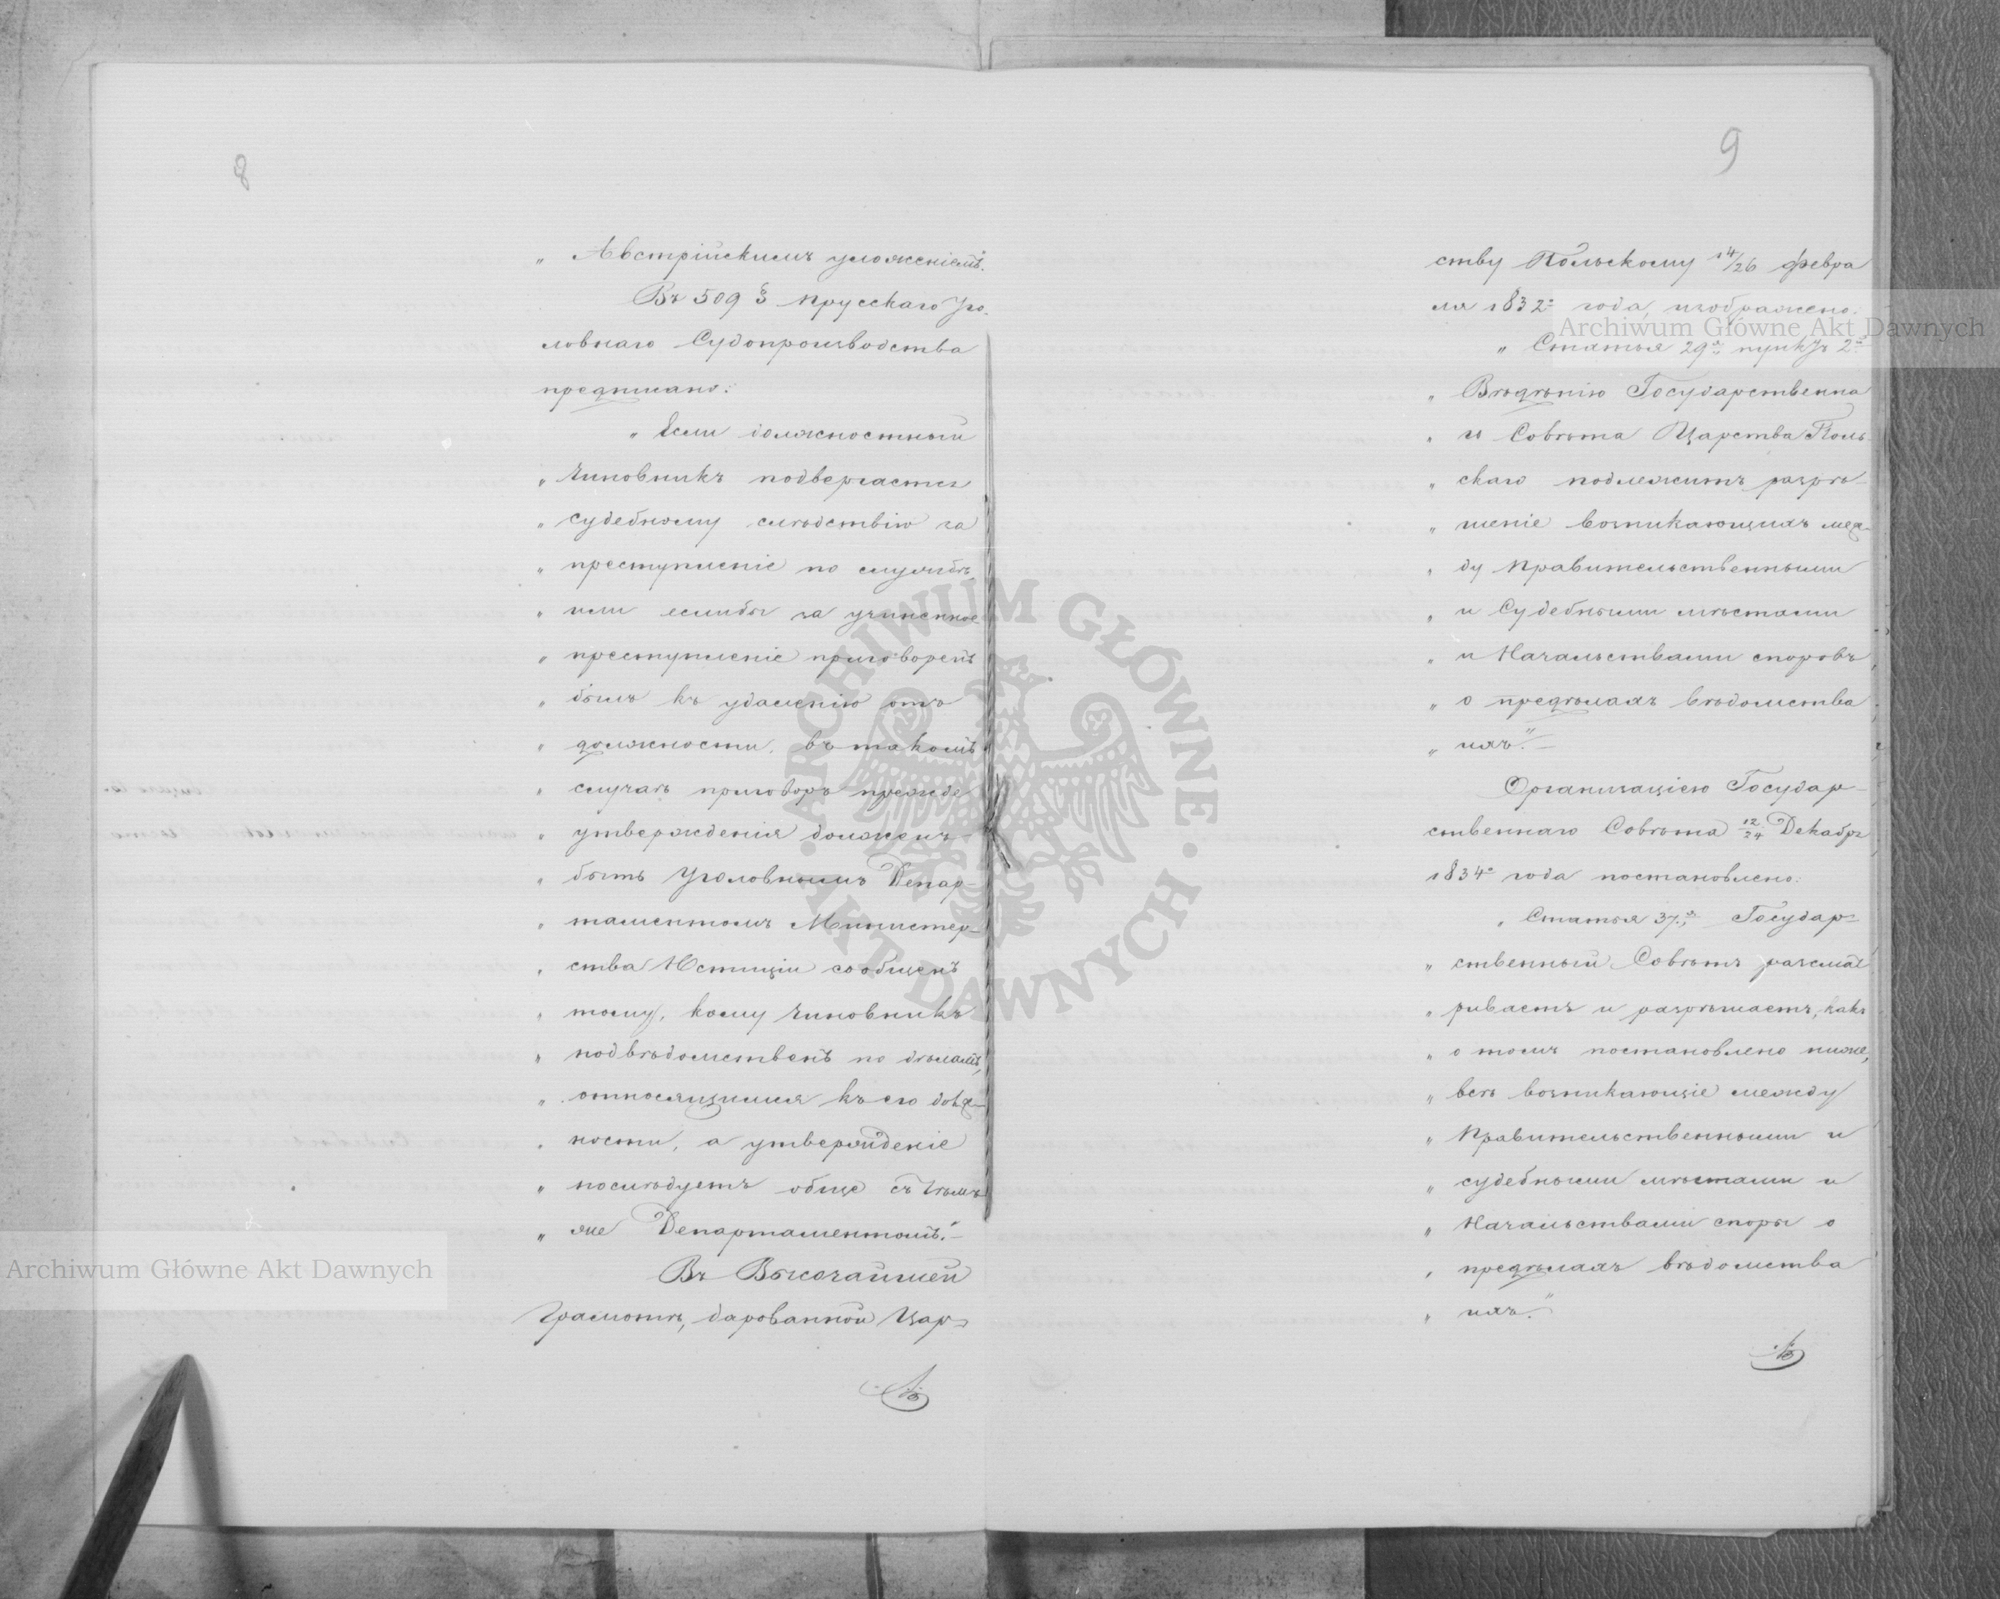 8
„ Австрійскимъ уложеніемъ."
Въ 509 § Прусскаго Уго-
ловнаго Судопроизводства
предписано:
„ Если должностный
„ чиновникъ подвергается
„ судебному слѣдствію за
„ преступленіе по службѣ
„ или еслибы за учиненное
„ преступленіе приговоренъ
„ былъ къ удаленію отъ
„ должности, въ такомъ
„ случаѣ приговоръ прежде
„ утвержденія долженъ
„ быть Уголовнымъ Депар-
„ таментомъ Министер-
„ ства Юстиціи сообщенъ
„ тому, кому чиновникъ
„ подвѣдомственъ по дѣламъ,
„ относящимся къ его долж-
„ ности, а утвержденіе
„ послѣдуетъ обще съ тѣмъ
„ же Департаментомъ."—
Въ Высочайшей
Грамотѣ, дарованной Цар-
9
ству Польскому 14/26 Февра
ля 1832 года, изображено:
„ Статья 29я пунктъ 2й
„ Вѣдѣнію Государственна
„ го Совѣта Царства Поль-
„ скаго подлежитъ разрѣ-
„ шеніе возникающихъ меж-
„ ду Правительственными
„ и Судебными мѣстами
„ и Начальствами споровъ
„ о предѣлахъ вѣдомства
„ ихъ."—
Организаціею Государ-
ственнаго Совѣта 12/24 Декабря
1834 года постановлено:
„ Статья 37я, Государ-
„ ственный Совѣтъ разсмат
„ риваетъ и разрѣшаетъ, какъ
„ о томъ постановлено ниже,
„ всѣ возникающіе между
„ Правительственными и
„ судебными мѣстами и
„ Начальствами споры о
„ предѣлахъ вѣдомства
„ ихъ."
Archiwum Główne Akt Dawnych
Archiwum Główne Akt Dawnych
ARCHIWUM GŁÓWNE · AKT DAWNYCH ·